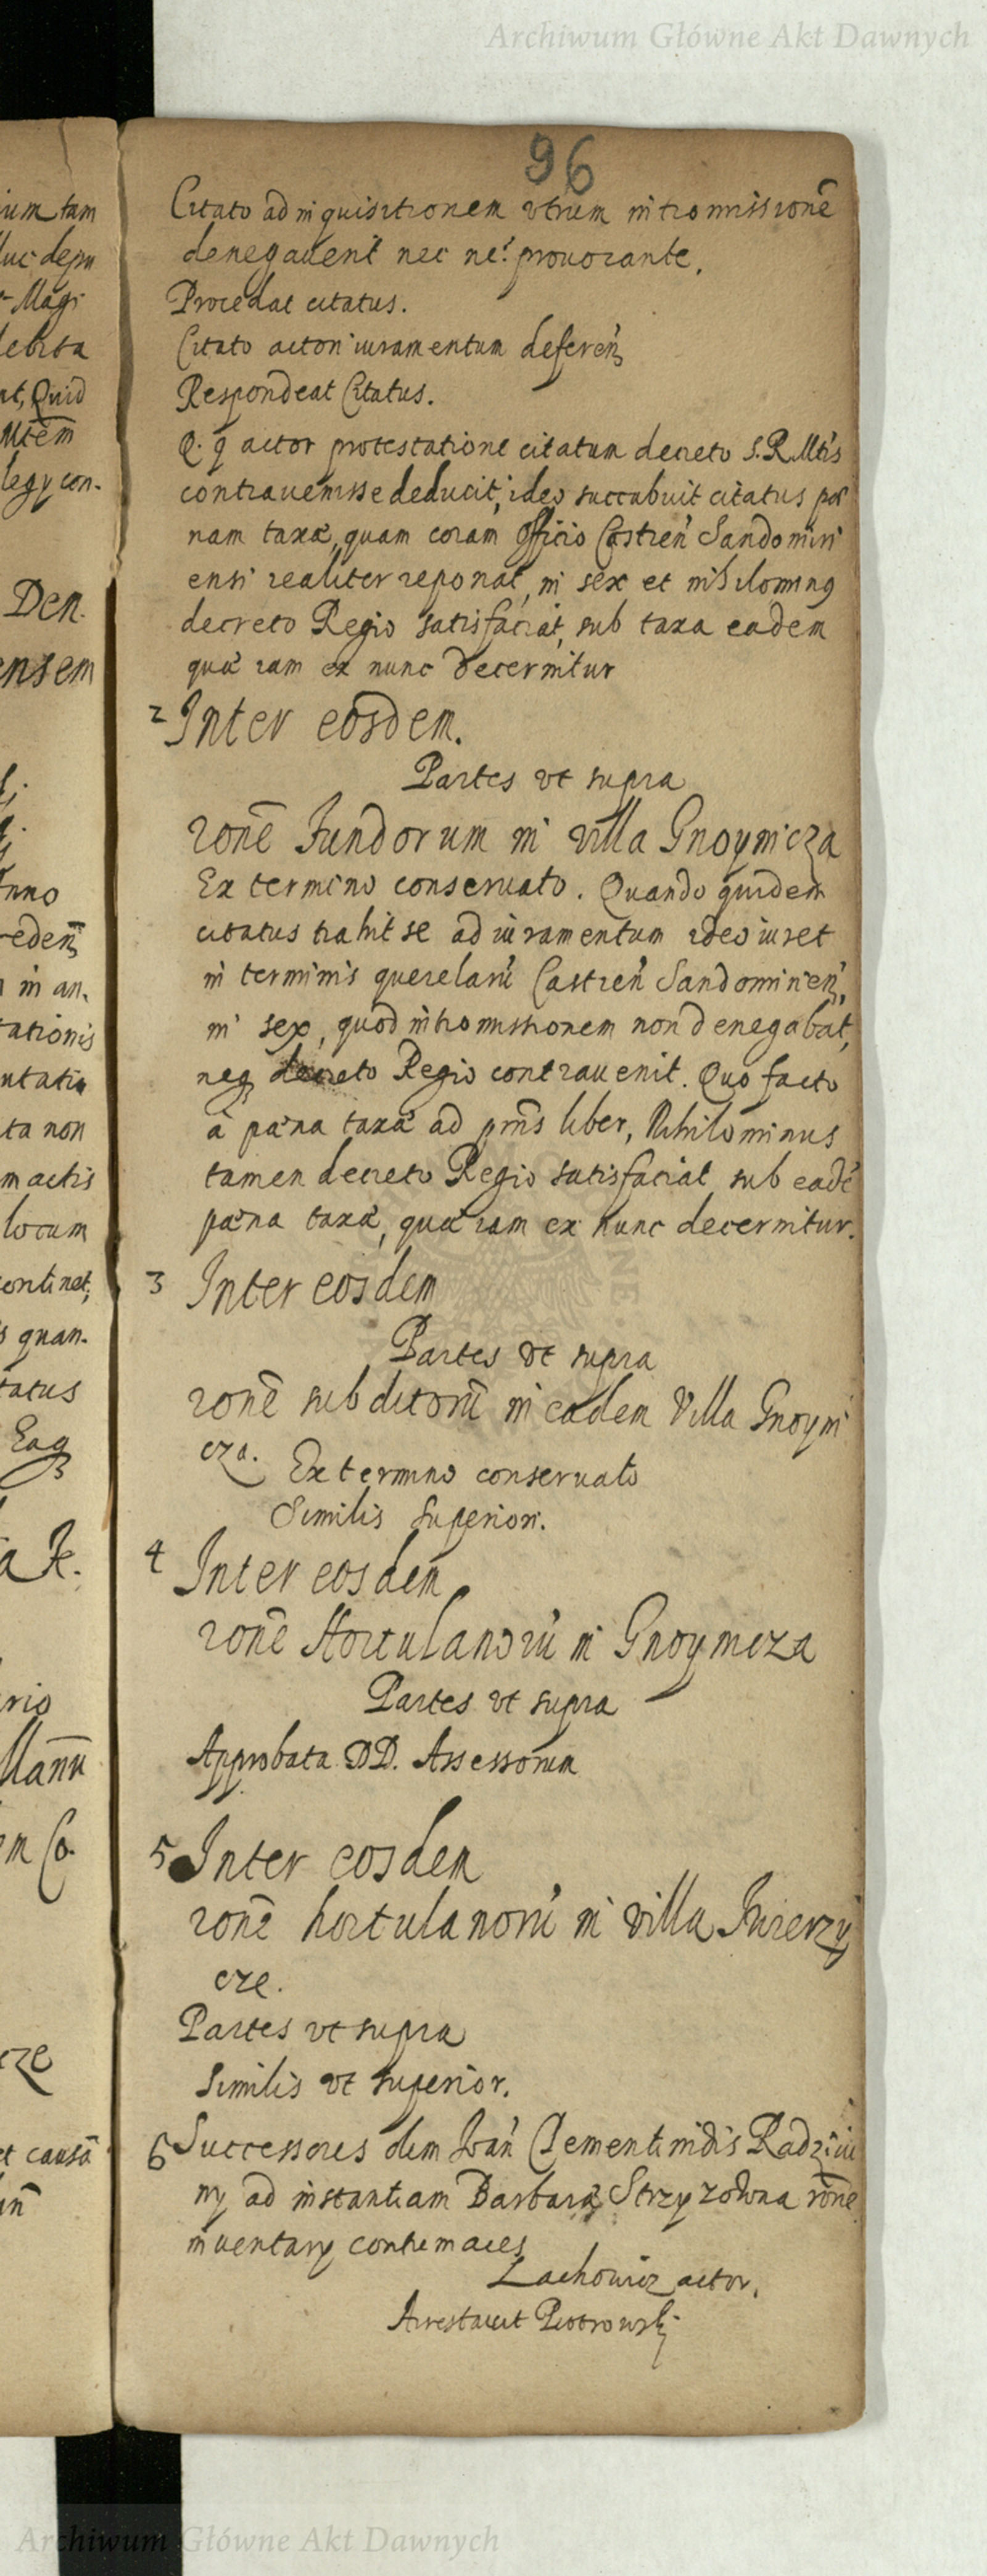 Archiwum Główne Akt Dawnych
96
Citato ad inquisitionem vtrum intromissionē
denegauerit nec ne? prouocante.
Procedat citatus.
Citato actori iuramentum deferen̄
Respondeat Citatus.
Q. q actor protestatione citatum decreto S. R. Mtis
contrauenisse deducit, ideo succubuit citatus pœ
nam taxæ, quam coram officio Castren̄ Sandomiri
ensi realiter reponat, in sex et nihilominq
decreto Regio satisfaciat, sub taxa eadem
quæ iam ex nunc decernitur
2 Inter eosdem.
Partes vt supra
ronē Fundorum in villa Gnoynicza
Ex termino conseruato. Quando quidem
citatus trahit se ad iuramentum ideo iuret
in terminis querelarū Castren̄ Sandomirien̄,
in sex, quod intromissionem non denegabat,
neq decreto Regio contrauenit. Quo facto
à pæna taxæ ad prn̄s liber, Nihilominus
tamen decreto Regio satisfaciat sub eadē
pæna taxæ, quæ iam ex nunc decernitur.
3 Inter eosdem
Partes vt supra
ronē subditorū in eadem Villa Gnoyni
cza. Ex termino conseruato
Similis superiori.
4 Inter eosdem
ronē Hortulanorū in Gnoynicza
Partes vt supra
Approbata DD. Assessorum
5 Inter eosdem
ronē hortulanorū in villa
cze.
Partes vt supra
Similis vt superior.
6 Successores olim Clementinidis Radziui
ny ad instantiam Barbaræ Strzyzowna ronē
inuentary contumaces
Lachowicz actor.
Arrestauit Piotrowski
ium tam
luc depu
Magi
debita
at, Quid
Mtēm
legy con-
Den.
ensem
Anno
in an.
tationis
utatio
ta non
m actis
locum
continet,
s quan-
tatus
Eaq
rio
cze
et causā
Archiwum Główne Akt Dawnych